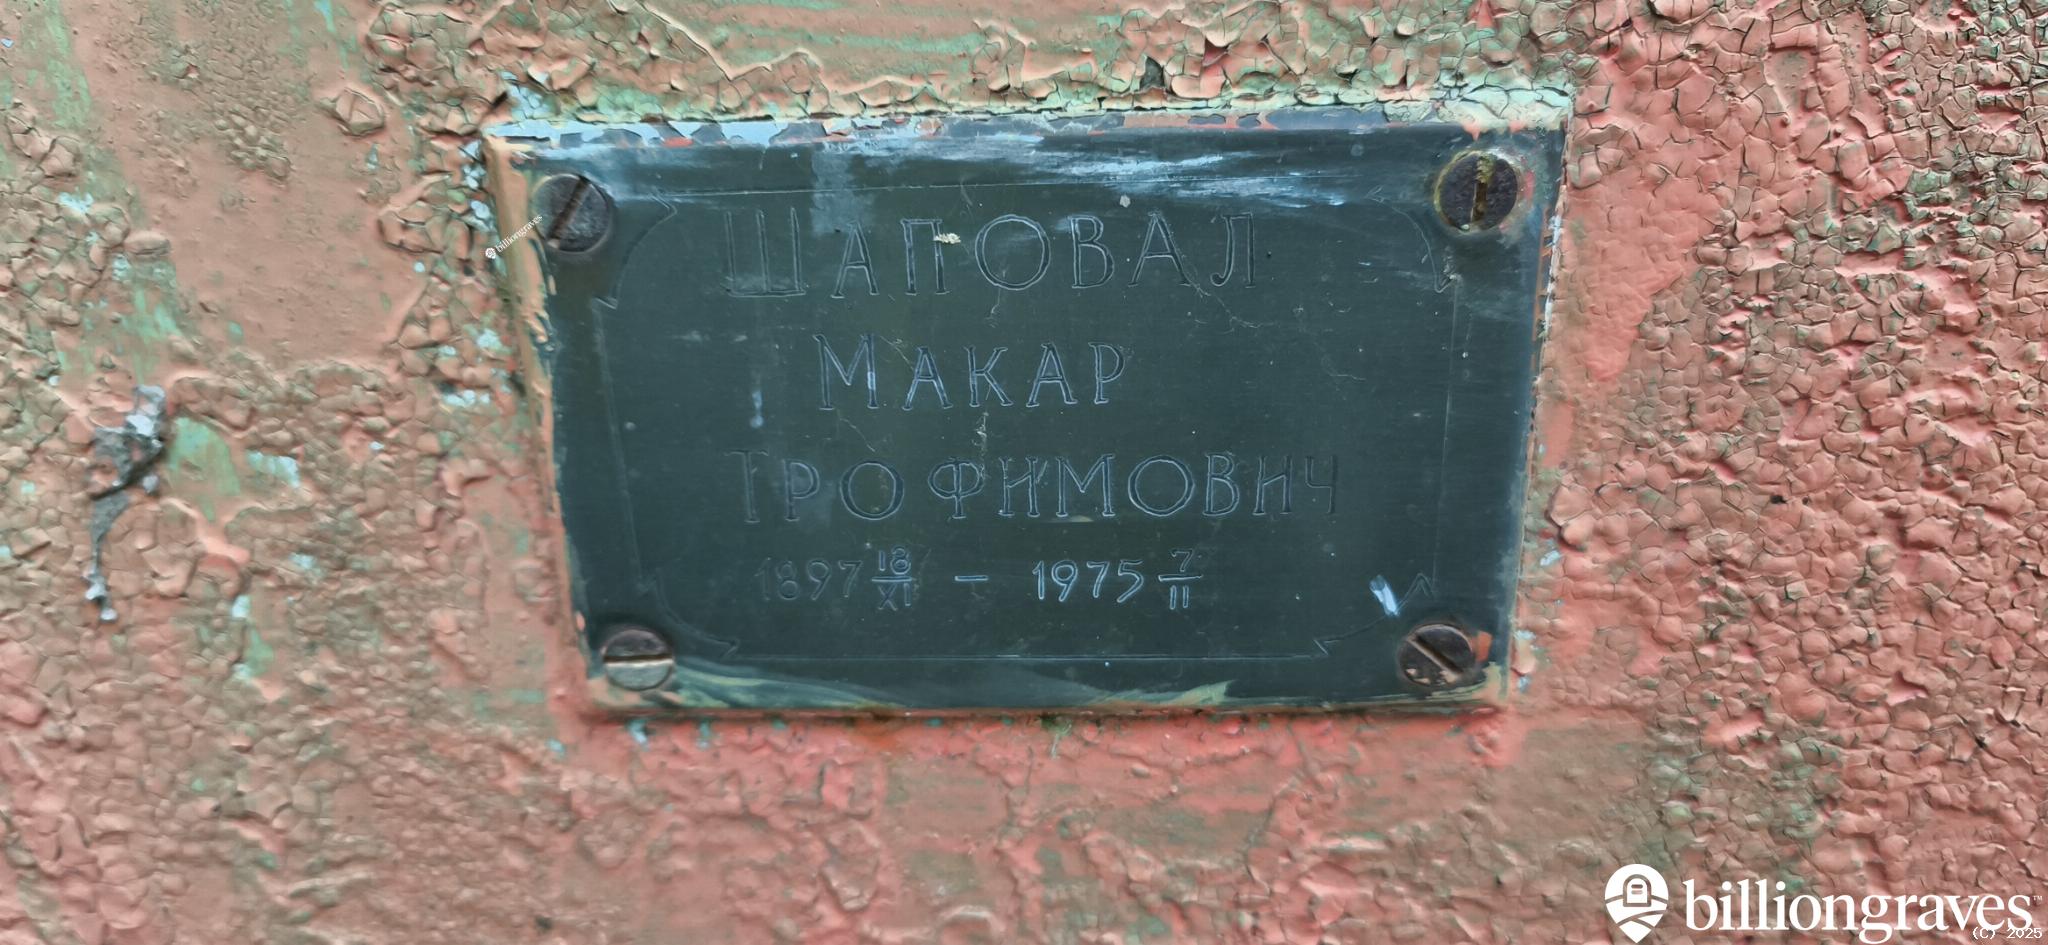 ШАПОВАЛ
МАКАР
ТРОФИМОВИЧ
1897 18/XI – 1975 7/II
billiongraves
billiongraves™
(C) 2025